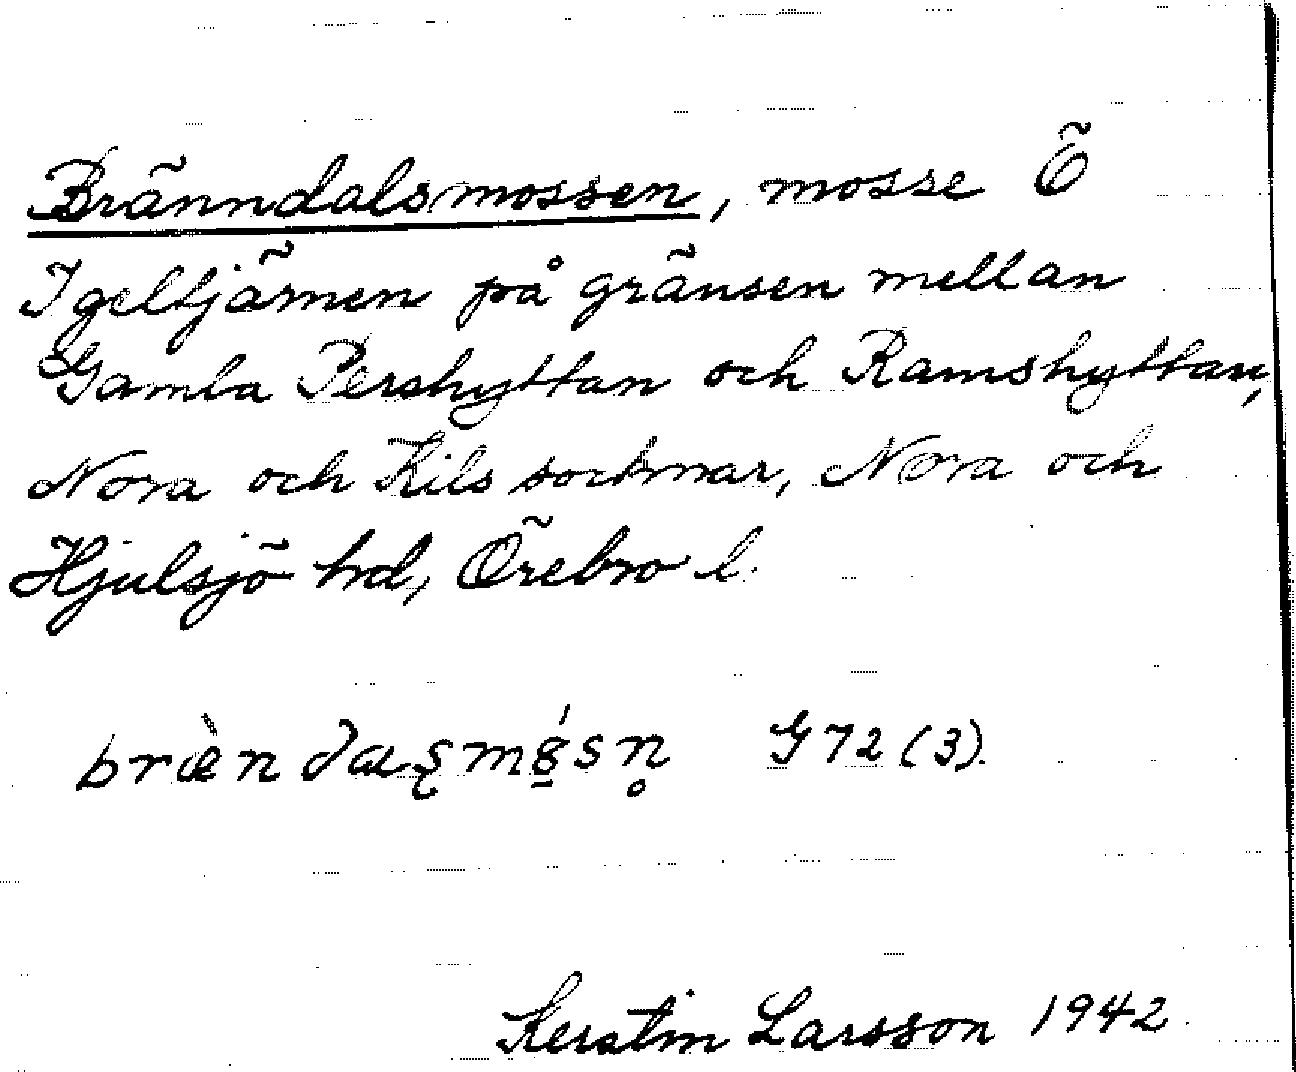 Bränndalsmossen, mosse Ö
Igeltjärnen på gränsen mellan
Gamla Pershyttan och Ramshyttan,
Nora och Kils socknar, Nora och
Hjulsjö hd, Örebro l.
G 72 (3).
Kerstin Larsson 1942